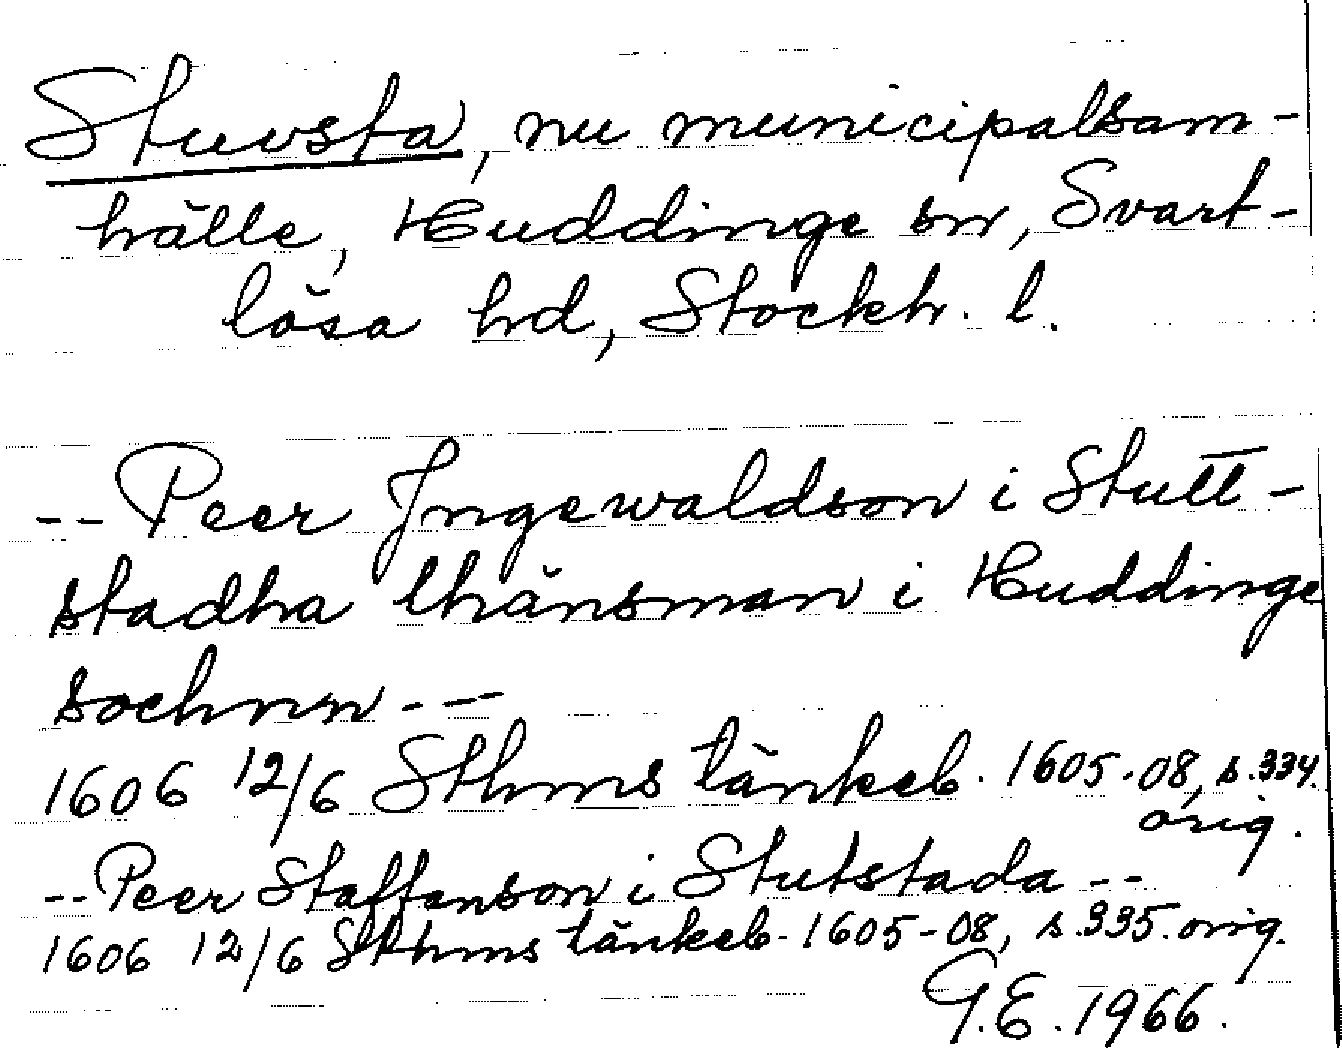 Stuvsta, nu municipalsam-
hälle, Huddinge sn, Svart-
lösa hd, Stockh. l.
-- Peer Jngewaldson i Stutt-
stadha lhänsman i Huddinge
sochnn ---
1606 12/6 Sthms tänkeb. 1605-08, s. 334.
orig.
-- Peer Staffanson i Stutstada --
1606 12/6 Sthms tänkeb. 1605-08, s. 335. orig.
G.E. 1966.